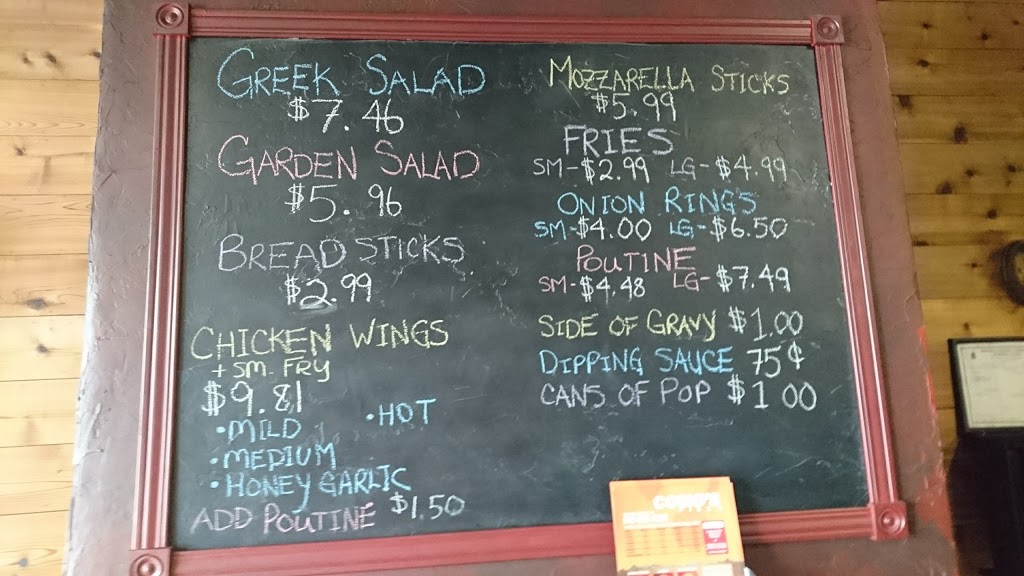 GREEK SALAD
$7.46
GARDEN SALAD
$5.96
BREAD STICKS
$2.99
CHICKEN WINGS
+ SM. FRY
$9.81
• MILD • HOT
• MEDIUM
• HONEY GARLIC
ADD POUTINE $1.50
MOZZARELLA STICKS
$5.99
FRIES
SM-$2.99 LG-$4.99
ONION RINGS
SM-$4.00 LG-$6.50
POUTINE
SM-$4.48 LG-$7.49
SIDE OF GRAVY $1.00
DIPPING SAUCE 75¢
CANS OF POP $1 00